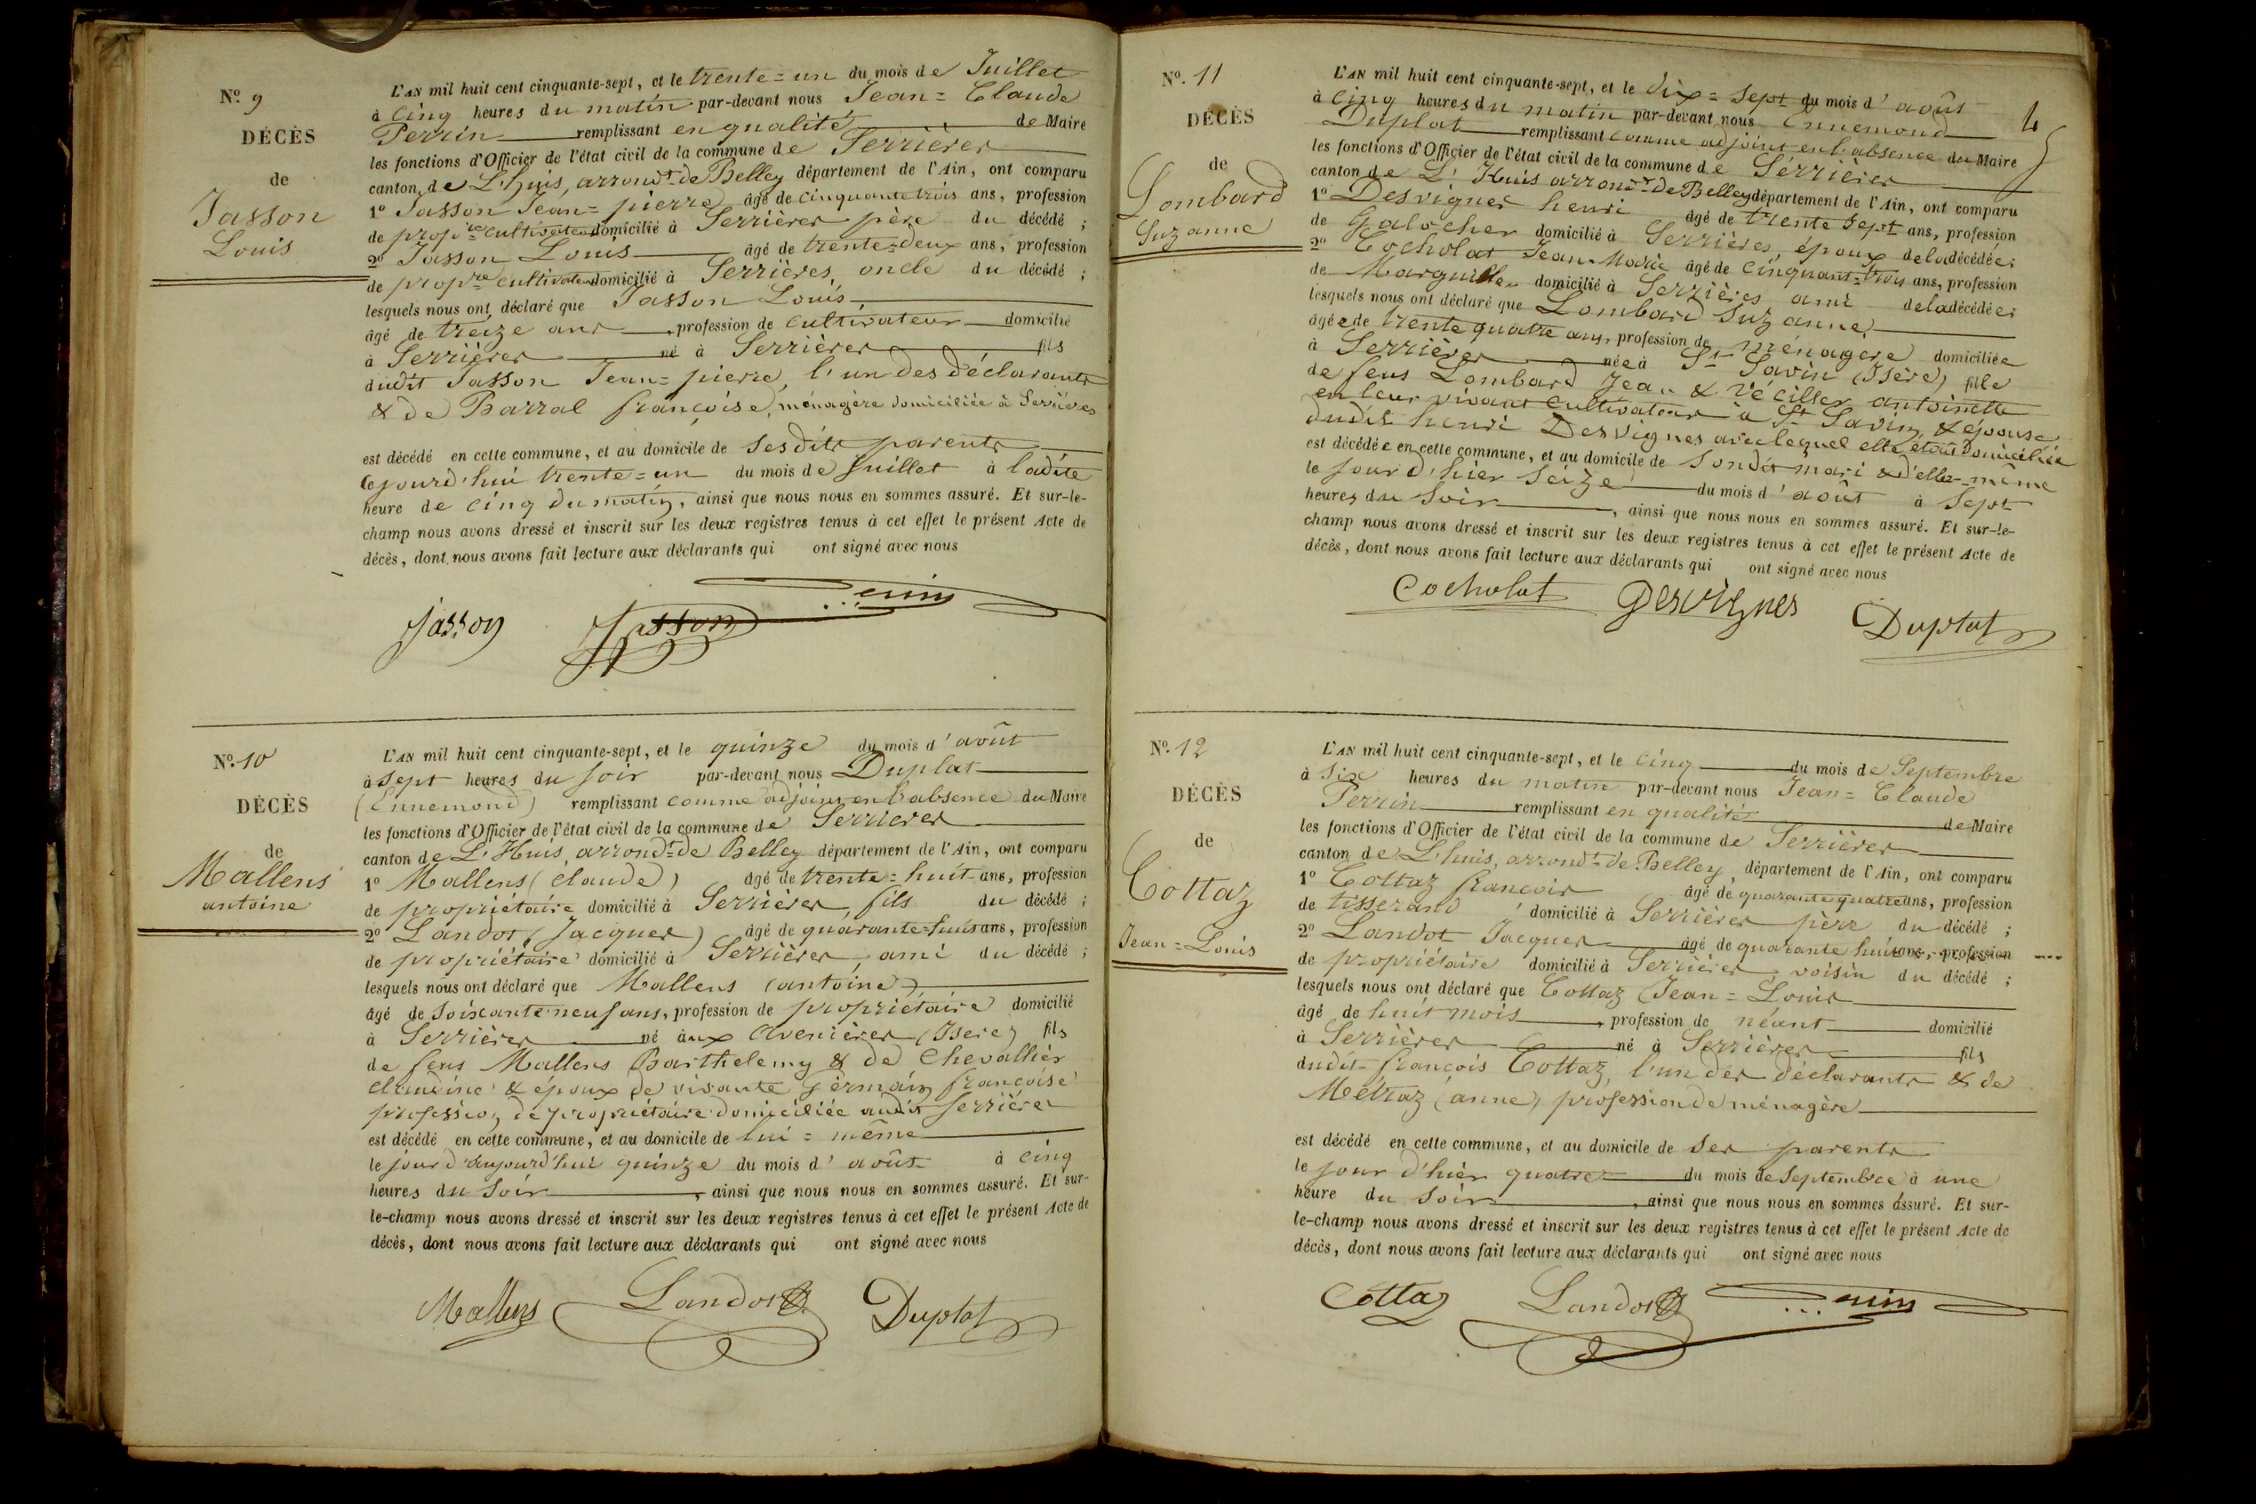 Nº. 9
DÉCÈS
de
Jasson
Louis
L'AN mil huit cent cinquante-sept, et le trente=un du mois de Juillet
à cinq heures du matin par-devant nous Jean=Claude
Perrin remplissant en qualité de Maire
les fonctions d'Officier de l'état civil de la commune de Serrières
canton de L'huis, arrondt. de Belley département de l'Ain, ont comparu
1º Jasson Jean=pierre âgé de cinquante trois ans, profession
de propre cultivateur domicilié à Serrières père du décédé ;
2º Jasson Louis âgé de trente=deux ans, profession
de propre cultivateur domicilié à Serrières, oncle du décédé ;
lesquels nous ont déclaré que Jasson Louis,
âgé de treize ans, profession de cultivateur domicilié
à Serrières né à Serrières fils
dudit Jasson Jean=pierre, l'un des déclarants
& de Barral françoise, ménagère domiciliée à Serrières
est décédé en cette commune, et au domicile de sesdits parents
cejourd'hui trente=un du mois de juillet à ladite
heure de cinq du matin, ainsi que nous nous en sommes assuré. Et sur-le-
champ nous avons dressé et inscrit sur les deux registres tenus à cet effet le présent Acte de
décès, dont nous avons fait lecture aux déclarants qui ont signé avec nous
Jasson Jasson Perrin
Nº. 10
DÉCÈS
de
Mallens
antoine
L'AN mil huit cent cinquante-sept, et le quinze du mois d'août
à sept heures du soir par-devant nous Duplat
(Ennemond) remplissant comme adjoint en l'absence du Maire
les fonctions d'Officier de l'état civil de la commune de Serrières
canton de L'Huis, arrondt. de Belley département de l'Ain, ont comparu
1º Mallens (claude) âgé de trente=huit ans, profession
de propriétaire domicilié à Serrières, fils du décédé ;
2º Landot (Jacques) âgé de quarante=huit ans, profession
de propriétaire domicilié à Serrières, ami du décédé ;
lesquels nous ont déclaré que Mallens (antoine),
âgé de soixante neuf ans, profession de propriétaire domicilié
à Serrières né aux avenières (Isère) fils
de feus Mallens Barthelemy & de Chevallier
claudine & époux de vivante Germain françoise
profession de propriétaire domiciliée audit Serrières
est décédé en cette commune, et au domicile de lui=même
le jour d'aujourd'hui quinze du mois d'août à cinq
heures du soir, ainsi que nous nous en sommes assuré. Et sur-
le-champ nous avons dressé et inscrit sur les deux registres tenus à cet effet le présent Acte de
décès, dont nous avons fait lecture aux déclarants qui ont signé avec nous
Mallens Landot Duplat
Nº. 11
DÉCÈS
de
Lombard
Suzanne
L'AN mil huit cent cinquante-sept, et le dix=sept du mois d'août
à cinq heures du matin par-devant nous Ennemond
Duplat remplissant comme adjoint en l'absence du Maire
les fonctions d'Officier de l'état civil de la commune de Serrières
canton de L'Huis arrondt. de Belley département de l'Ain, ont comparu
1º Desvignes henri âgé de trente sept ans, profession
de Galocher domicilié à Serrières, époux de la décédée ;
2º Cocholat Jean-Marie âgé de cinquante=trois ans, profession
de Marguiller domicilié à Serrières ami de la décédée ;
lesquels nous ont déclaré que Lombard Suzanne,
âgée de trente quatre ans, profession de ménagère domiciliée
à Serrières née à St Savin (Isère) fille
de feus Lombard Jean & Véciller antoinette
en leur vivant cultivateur à St Savin, & épouse
dudit henri Desvignes avec lequel elle était domiciliée
est décédée en cette commune, et au domicile de sondit mari & d'elle-même
le jour d'hier seize du mois d'août à sept
heures du soir, ainsi que nous nous en sommes assuré. Et sur-le-
champ nous avons dressé et inscrit sur les deux registres tenus à cet effet le présent Acte de
décès, dont nous avons fait lecture aux déclarants qui ont signé avec nous
Cocholat Desvignes Duplat
Nº. 12
DÉCÈS
de
Cottaz
Jean=Louis
L'AN mil huit cent cinquante-sept, et le cinq du mois de Septembre
à six heures du matin par-devant nous Jean=Claude
Perrin remplissant en qualité de Maire
les fonctions d'Officier de l'état civil de la commune de Serrières
canton de L'huis, arrondt. de Belley, département de l'Ain, ont comparu
1º Cottaz francois âgé de quarante quatre ans, profession
de tisserand domicilié à Serrières père du décédé ;
2º Landot Jacques âgé de quarante huit ans, profession
de propriétaire domicilié à Serrières, voisin du décédé ;
lesquels nous ont déclaré que Cottaz (Jean=Louis
âgé de huit mois, profession de néant domicilié
à Serrières né à Serrières fils
dudit françois Cottaz, l'un des déclarants & de
Métraz (anne) profession de ménagère
est décédé en cette commune, et au domicile de ses parents
le jour d'hier quatre du mois de Septembre à une
heure du soir, ainsi que nous nous en sommes assuré. Et sur-
le-champ nous avons dressé et inscrit sur les deux registres tenus à cet effet le présent Acte de
décès, dont nous avons fait lecture aux déclarants qui ont signé avec nous
Cottaz Landot Perrin